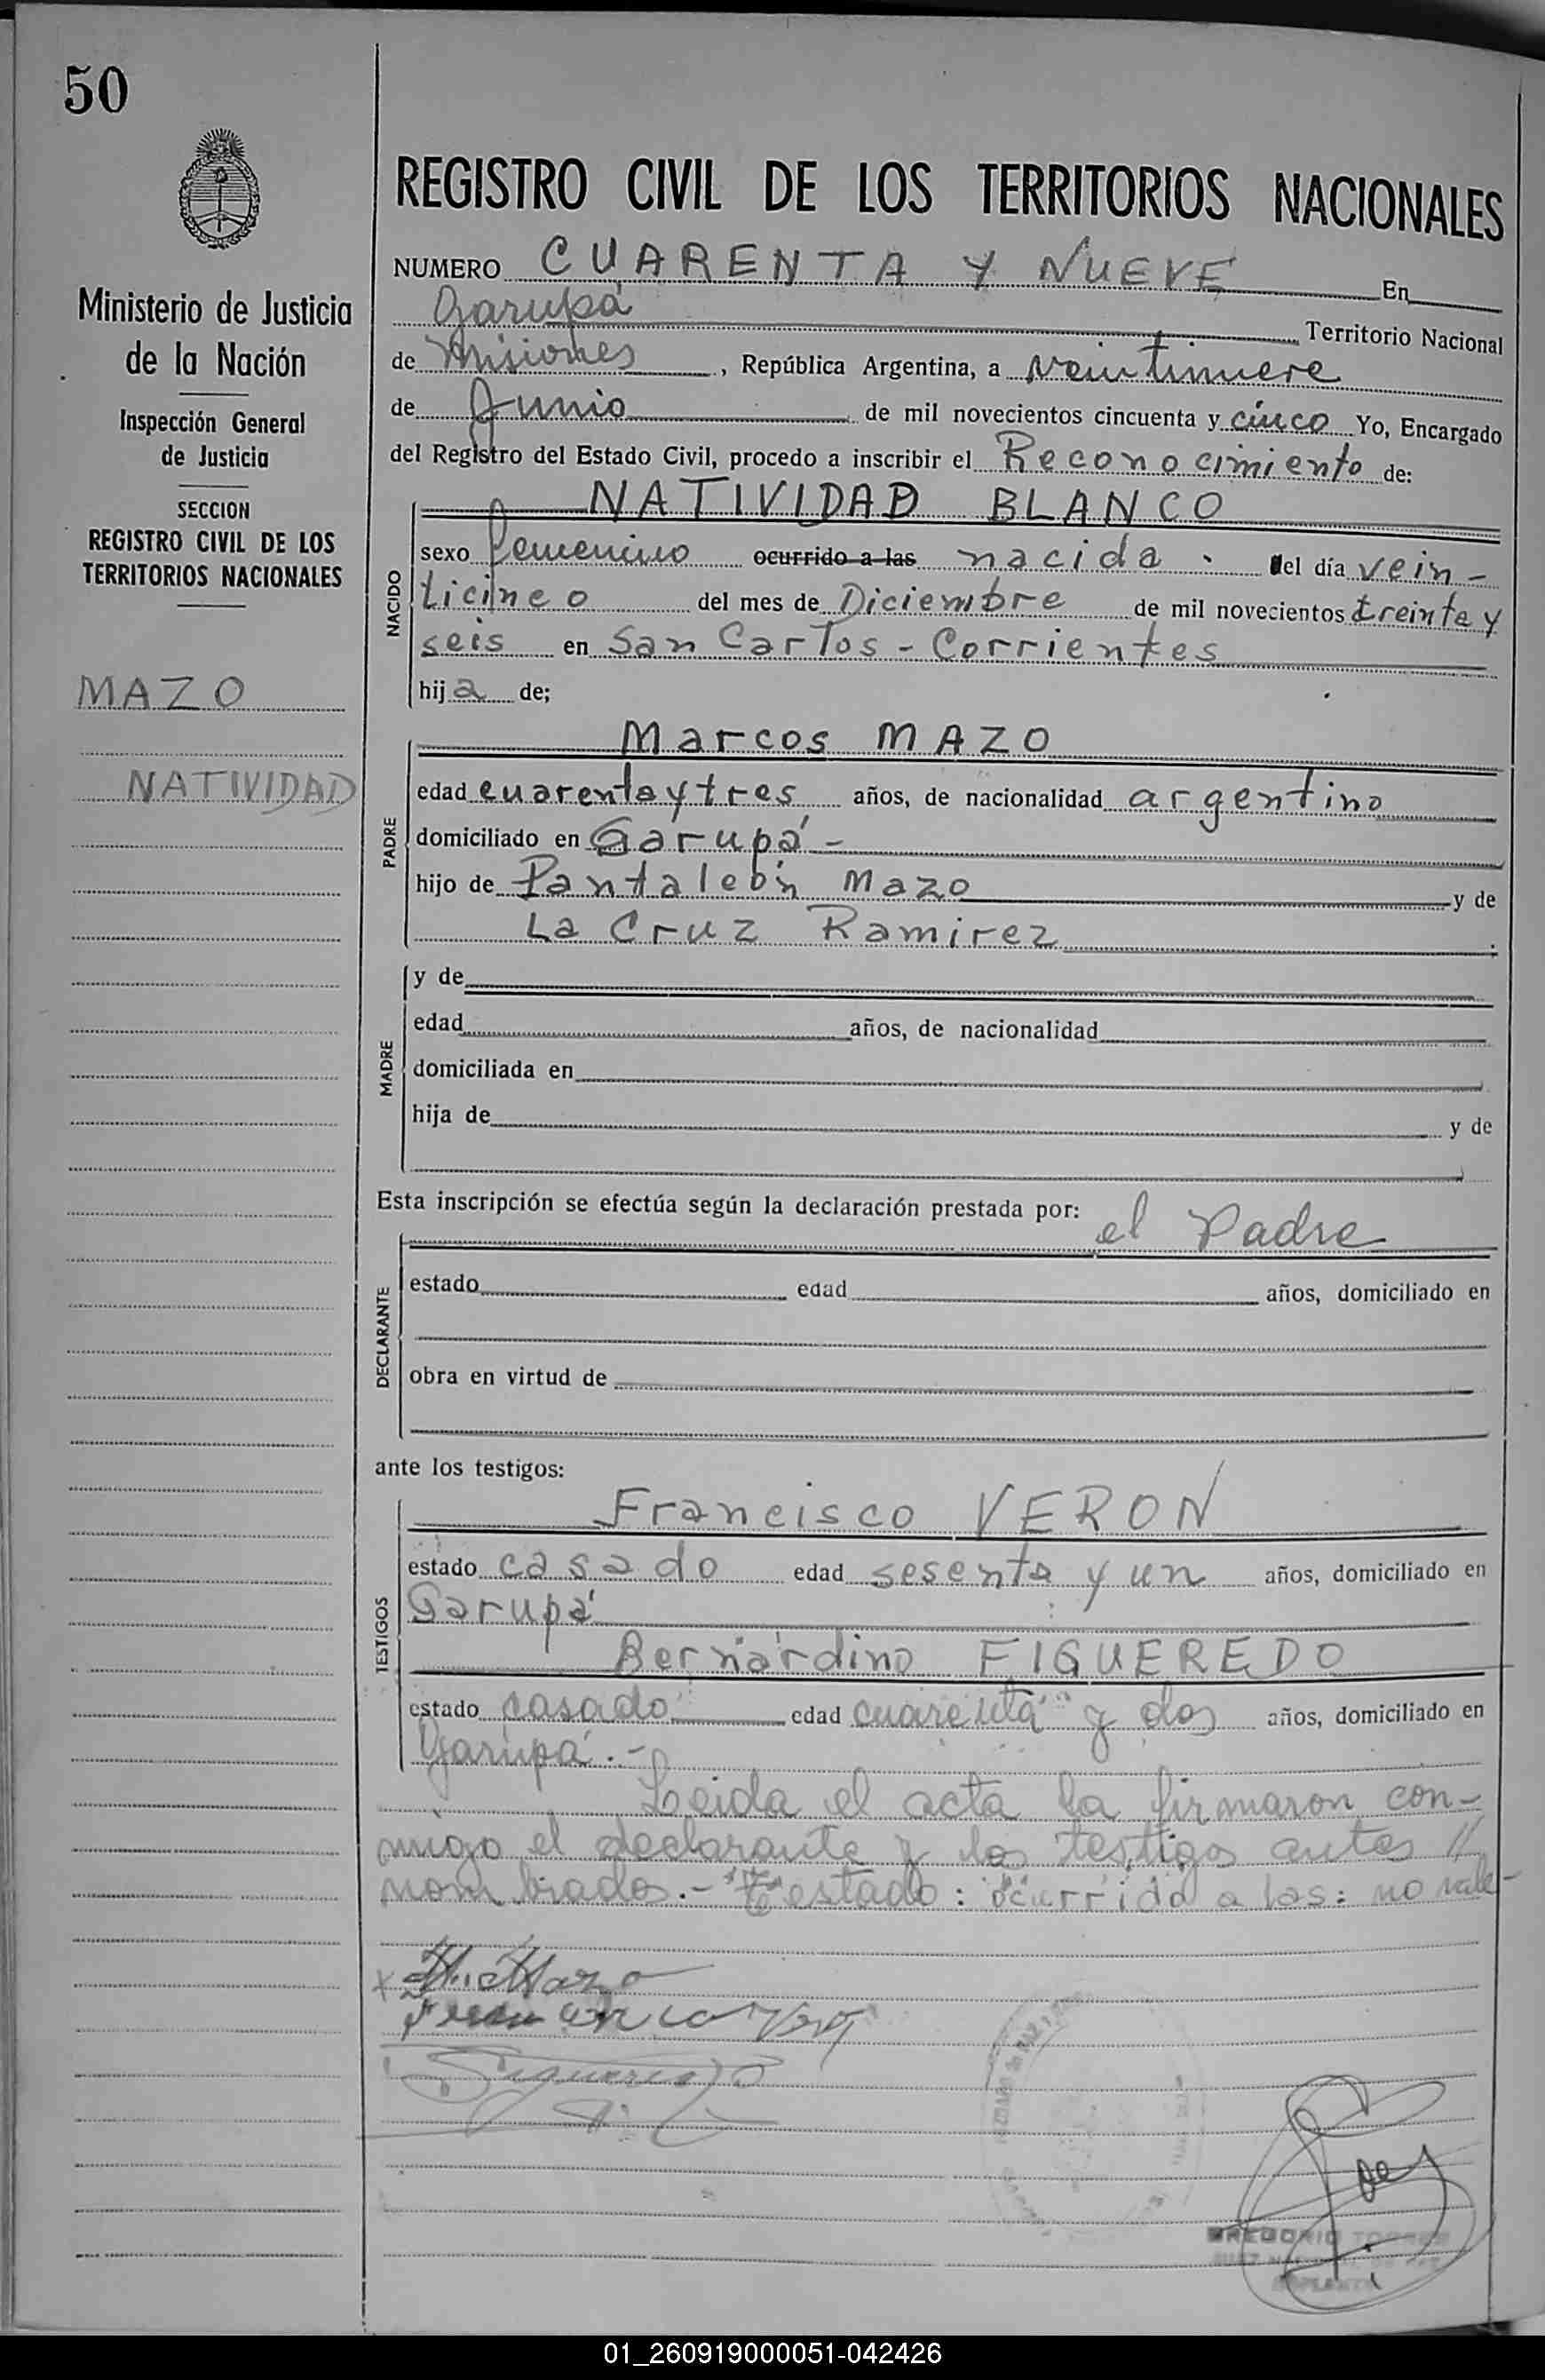 50
REGISTRO CIVIL DE LOS TERRITORIOS NACIONALES
Ministerio de Justicia
de la Nación
Inspección General
de Justicia
SECCION
REGISTRO CIVIL DE LOS
TERRITORIOS NACIONALES
MAZO
NATIVIDAD
NUMERO CUARENTA Y NUEVE En
Garupá Territorio Nacional
de Misiones, República Argentina, a veintinueve
de Junio de mil novecientos cincuenta y cinco Yo, Encargado
del Registro del Estado Civil, procedo a inscribir el Reconocimiento de:
NATIVIDAD BLANCO
NACIDO
sexo femenino ocurrido a las nacida. del día vein-
ticinco del mes de Diciembre de mil novecientos treinta y
seis en San Carlos - Corrientes
hija de;
Marcos MAZO
PADRE
edad cuarenta y tres años, de nacionalidad argentino
domiciliado en Garupá -
hijo de Pantaleón Mazo y de
La Cruz Ramirez
MADRE
y de
edad años, de nacionalidad
domiciliada en
hija de y de
Esta inscripción se efectúa según la declaración prestada por: el Padre
DECLARANTE
estado edad años, domiciliado en
obra en virtud de
ante los testigos:
Francisco VERON
TESTIGOS
estado casado edad sesenta y un años, domiciliado en
Garupá
Bernardino FIGUEREDO
estado casado edad cuarenta y dos años, domiciliado en
Garupá.-
Leida el acta la firmaron con-
migo el declarante y los testigos antes //
nombrados.- Testado: ocurrido a las: no vale-
Mazo
Figueredo
GREGORIO TORRES
SUPLENTE
01_260919000051-042426